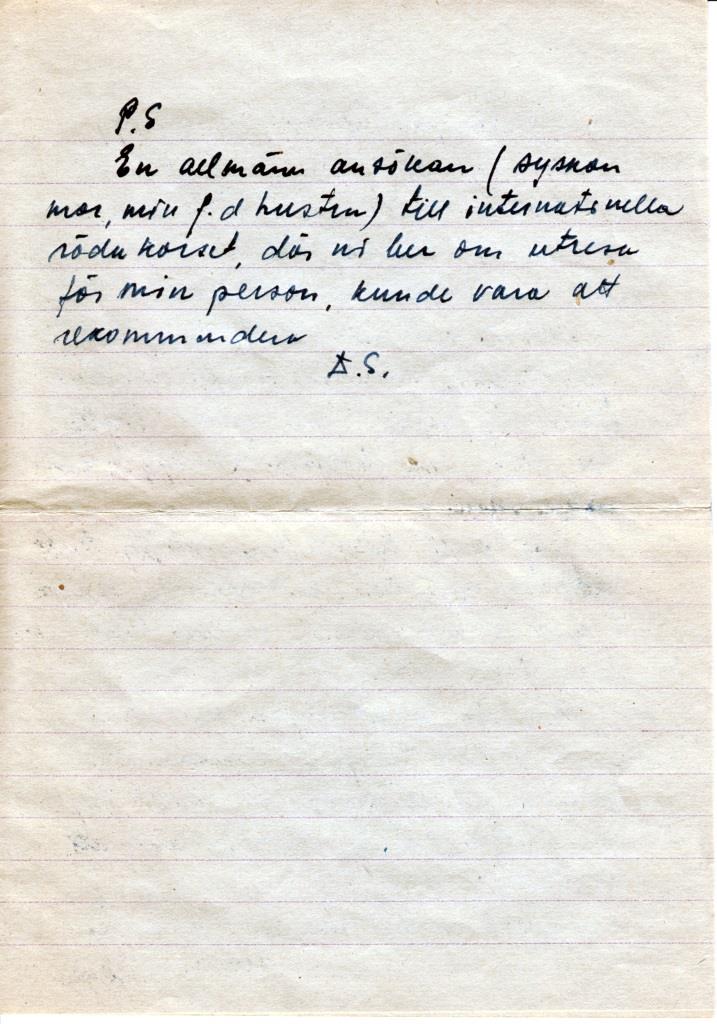 P.S
En allmänn ansökan (syskon
mor, min f.d hustru) till internationella
röda korset, där ni ber om utresa
för min person, kunde vara att
rekommendera
D.S.